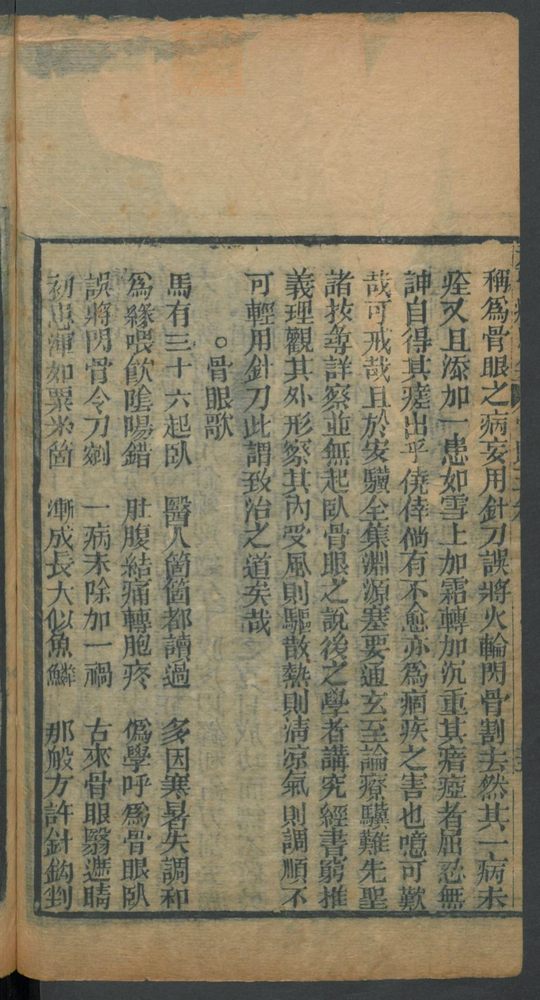 稱爲骨眼之病妄用針刀誤將火輪閃骨割去然其一病未
痊又且添加一患如雪上加霜轉加沉重其瘖瘂者屈忍無
訷自得其瘥出乎僥倖倘有不愈亦爲痼疾之害也噫可歎
哉可戒哉且於安驥全集淵源塞要通玄至論療驥難先聖
諸技等詳察並無起臥骨眼之說後之學者講究經書窮推
義理觀其外形察其內受風則驅散熱則清凉氣則調順不
可輕用針刀此謂致治之道矣哉
○骨眼歌
馬有三十六起臥 醫人箇箇都讀過 多因寒暑失調和
爲緣喂飲陰陽錯 肚腹結痛轉胞疼 僞學呼爲骨眼臥
誤將閃骨令刀剜 一病未除加一禍 古來骨眼翳遮睛
初患渾如粟米箇 漸成長大似魚鱗 那般方許針鈎剉